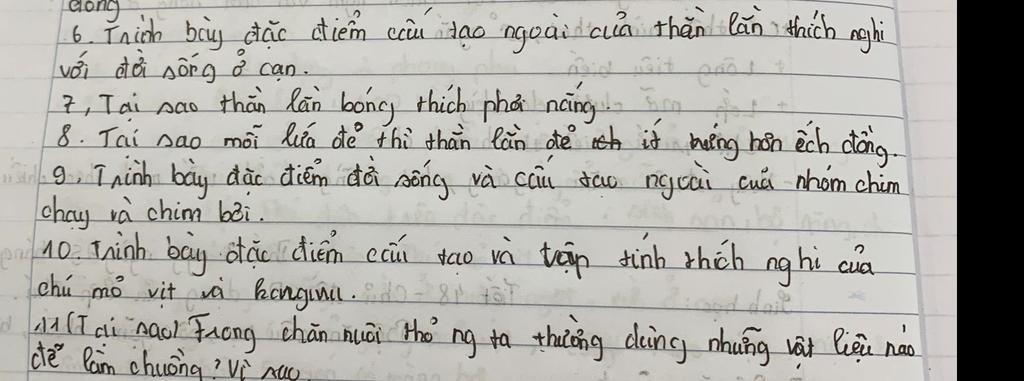 đồng
6. Trình bày đặc điểm cấu tạo ngoài của thằn lằn thích nghi
với đời sống ở cạn.
7, Tại sao thằn lằn bóng thích phơi nắng.
8. Tại sao mỗi lứa đẻ thì thằn lằn đẻ ít trứng hơn ếch đồng.
9, Trình bày đặc điểm đời sống và cấu tạo ngoài của nhóm chim
chạy và chim bơi.
10. Trình bày đặc điểm cấu tạo và tập tính thích nghi của
thú mỏ vịt và kanguru.
11 (Tại sao) Trong chăn nuôi thỏ ng ta thường dùng những vật liệu nào
để làm chuồng? Vì sao